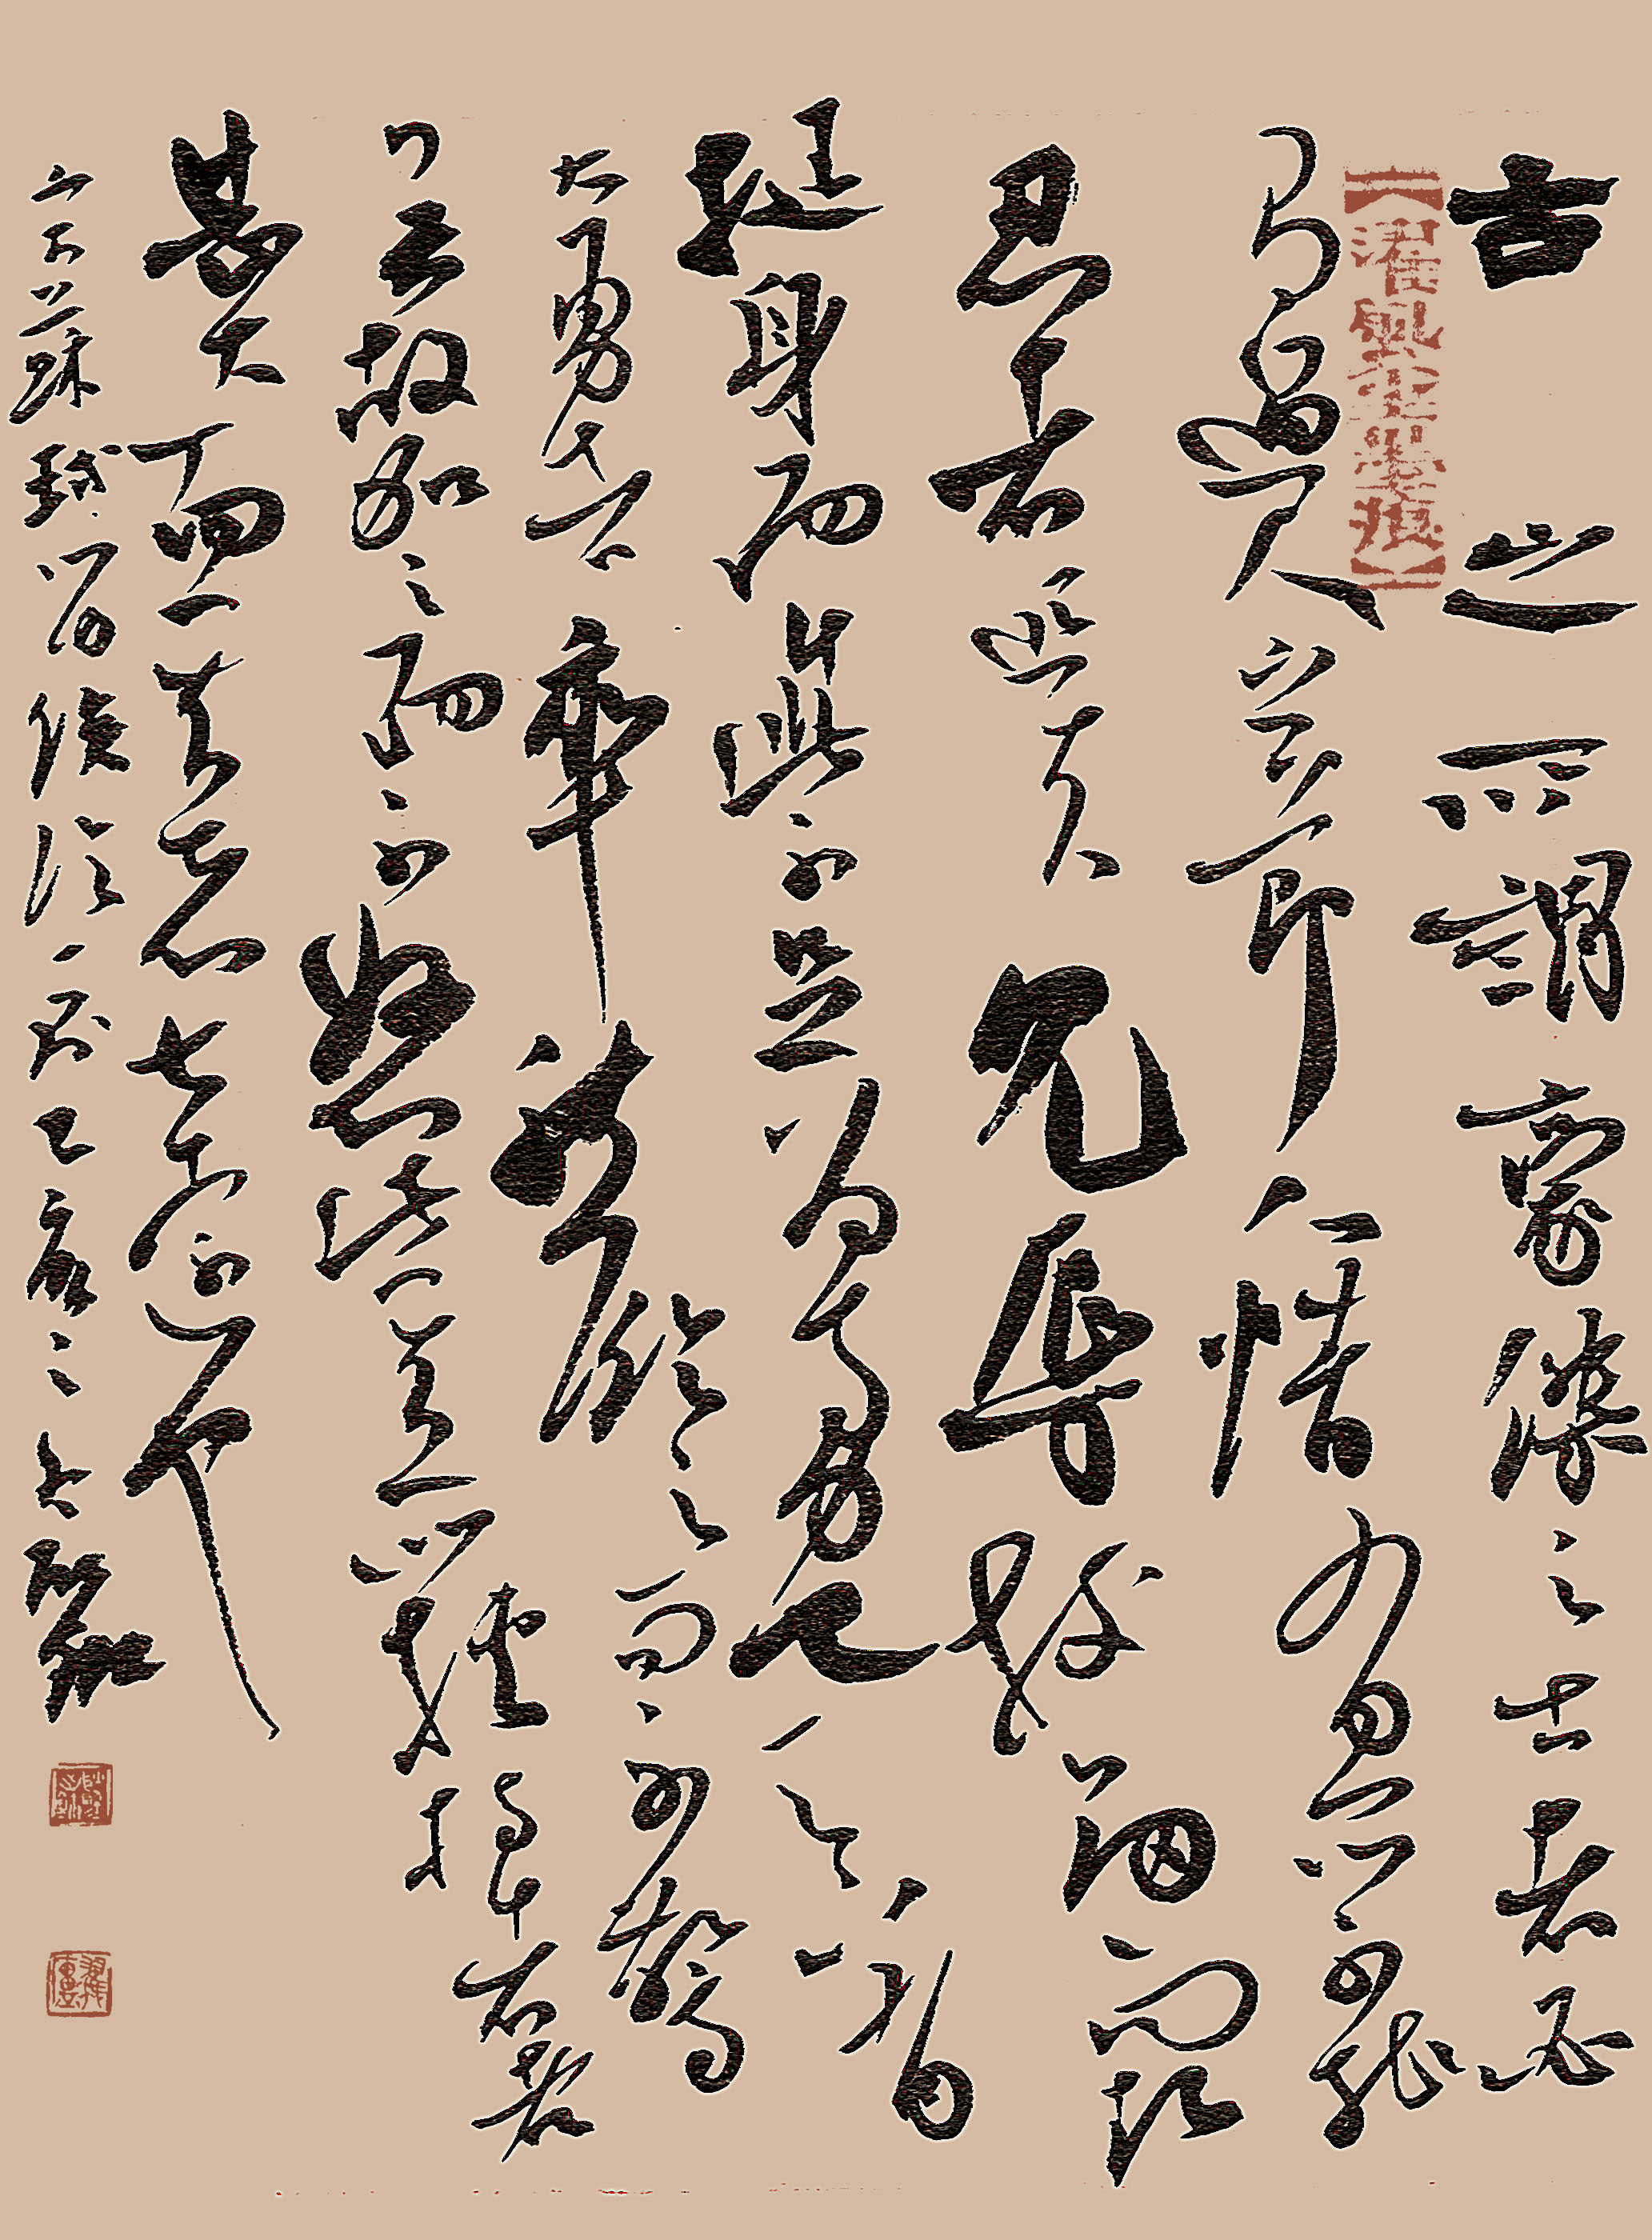 古之所謂豪傑之士者必
有過人之節人情有所不能
忍者匹夫見辱拔劍而起
挺身而鬥此不足為勇也天下有
大勇者卒然臨之而不驚
無故加之而不怒此其所挾持者
甚大而其志甚遠也
蘇軾留侯論一則乙亥之